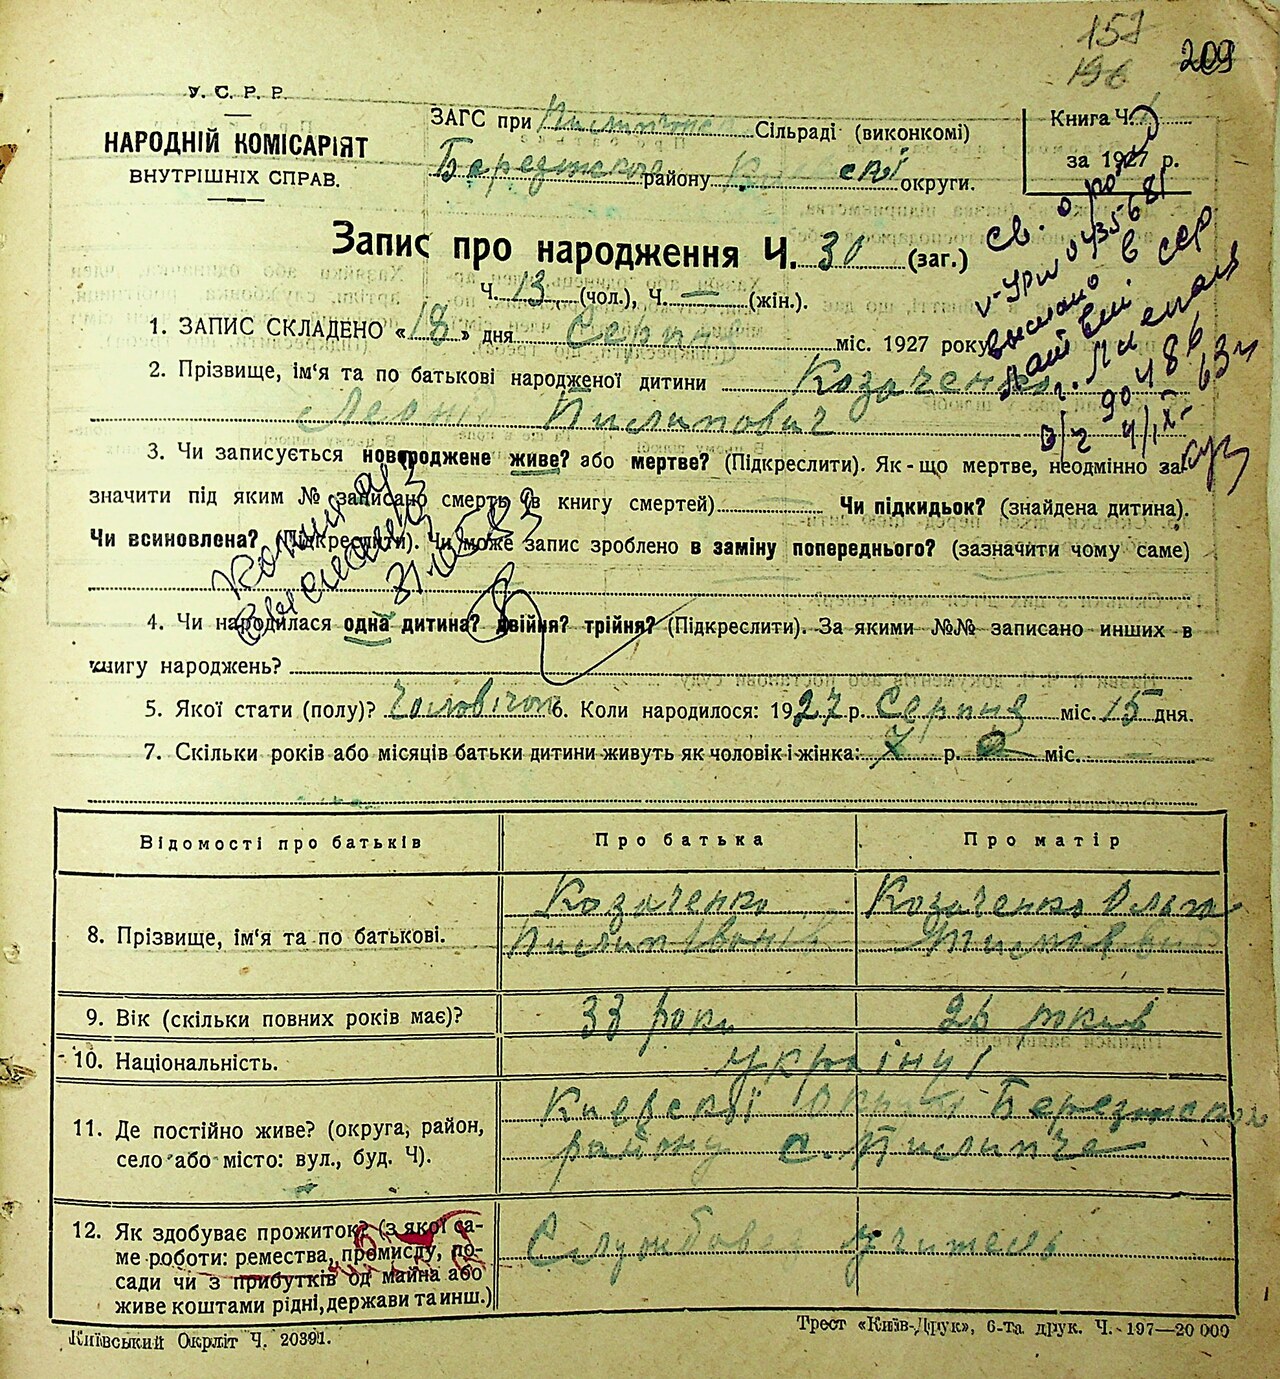 157
196
209
У. С. Р. Р.
НАРОДНІЙ КОМІСАРІЯТ
ВНУТРІШНІХ СПРАВ.
ЗАГС при Сільраді (виконкомі)
району округи.
Книга Ч.
за 1927 р.
Запис про народження Ч. 30 (заг.)
Ч. 13 (чол.), Ч. — (жін.).
1. ЗАПИС СКЛАДЕНО «18» дня Серпня міс. 1927 року
2. Прізвище, ім'я та по батькові народженої дитини Козаченко
Леонід Пилипович
3. Чи записується новороджене живе? або мертве? (Підкреслити). Як-що мертве, неодмінно за-
значити під яким № записано смерть (в книгу смертей) Чи підкидьок? (знайдена дитина).
Чи всиновлена? (Підкреслити). Чи може запис зроблено в заміну попереднього? (зазначити чому саме)
4. Чи народилася одна дитина? двійня? трійня? (Підкреслити). За якими №№ записано инших в
книгу народжень?
5. Якої стати (полу)? 6. Коли народилося: 1927 р. Серпня міс. 15 дня.
7. Скільки років або місяців батьки дитини живуть як чоловік і жінка: 7 р. міс. —
Відомості про батьків Про батька Про матір
8. Прізвище, ім'я та по батькові. Козаченко Козаченко Ольга
Пилип
9. Вік (скільки повних років має)? 33 роки 26 років
10. Національність. українці
11. Де постійно живе? (округа, район,
село або місто: вул., буд. Ч).
Киевскої Округи
району с. Пилипче
12. Як здобуває прожиток? (з якої са-
ме роботи: ремества, промислу, по-
сади чи з прибутків од майна або
живе коштами рідні, держави та инш.)
учитель
Київський Окрліт Ч. 20391.
Трест «Київ-Друк», 6-та друк. Ч. 197—20 000